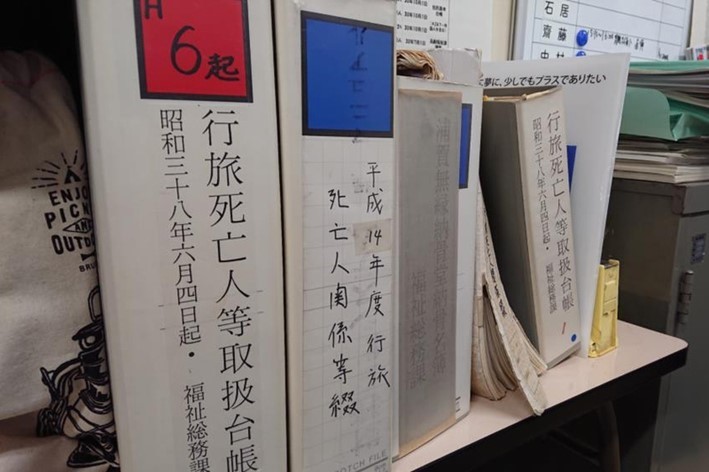 H
6起
行旅死亡人等取扱台帳
昭和三十八年六月四日起・
福祉総務課
平成14年度行旅
死亡人関係等綴
浦賀無縁納骨堂納骨名簿
福祉総務課
行旅死亡人等取扱台帳
昭和三十八年六月四日起・
福祉総務課
に夢に、少しでもプラスでありたい
石居
齋藤
ENJOY
PICN
AND
OUTDO